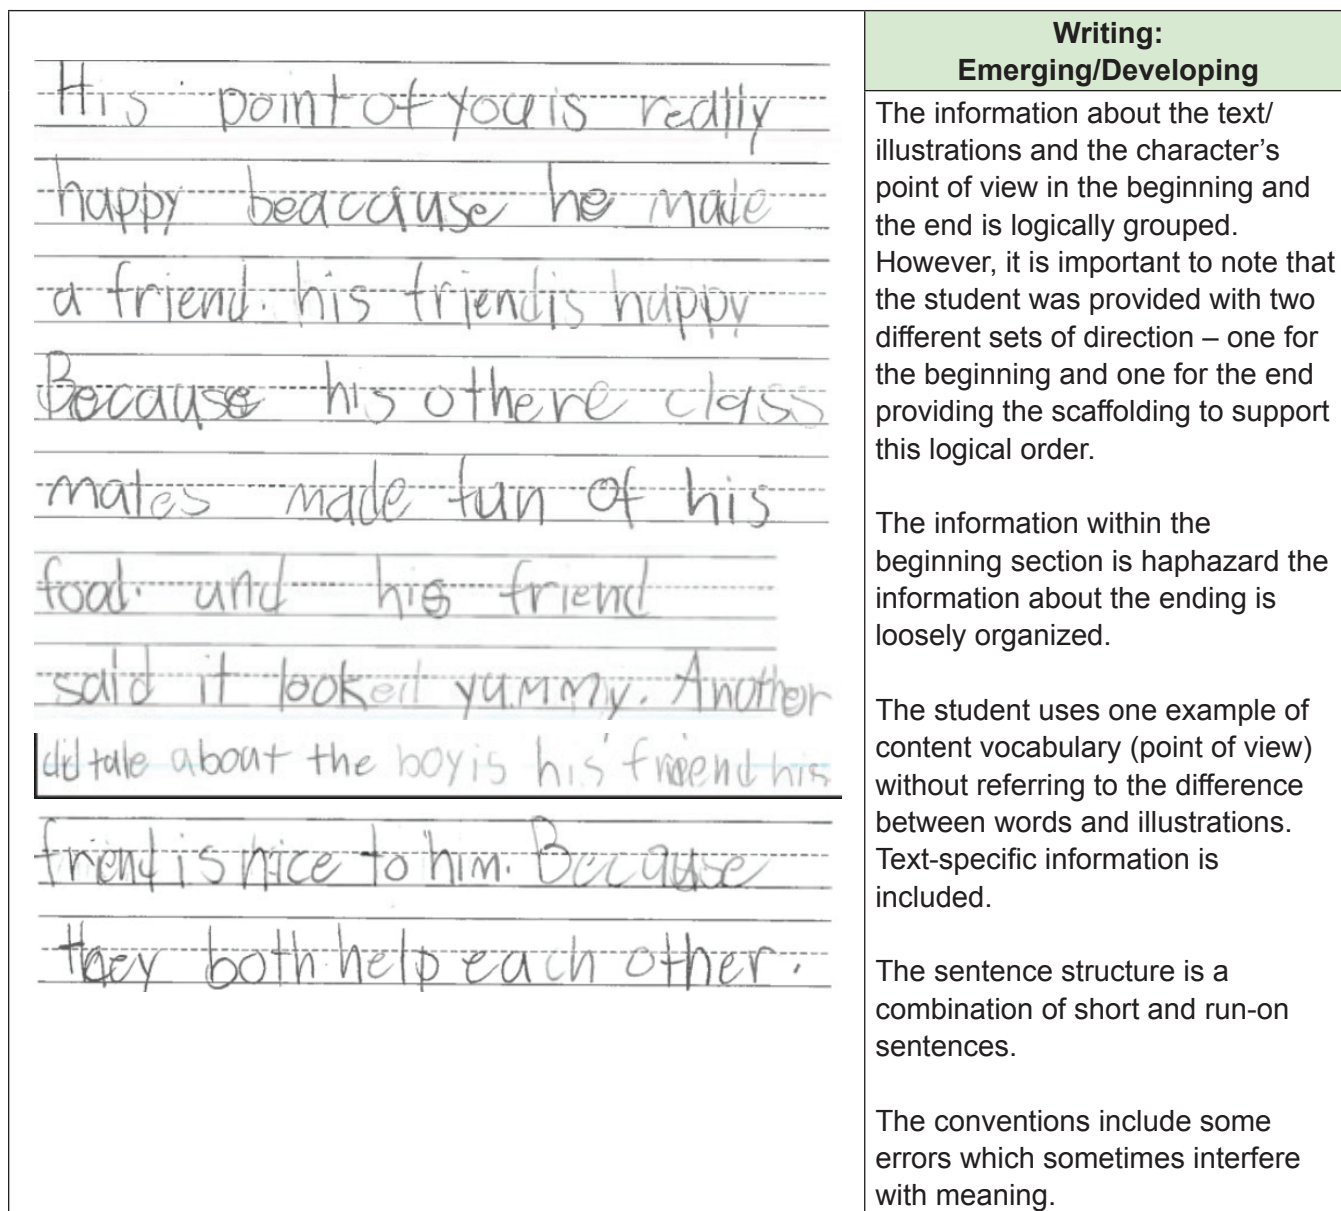 His point of you is reallly
happy beacause he made
a friend. his friend is happy
Because his othere class
mates made fun of his
food. and his friend
said it looked yummy. Another
did tale about the boy is his friend his
friend is nice to him. Because
they both help each other.
Writing:
Emerging/Developing
The information about the text/
illustrations and the character’s
point of view in the beginning and
the end is logically grouped.
However, it is important to note that
the student was provided with two
different sets of direction – one for
the beginning and one for the end
providing the scaffolding to support
this logical order.
The information within the
beginning section is haphazard the
information about the ending is
loosely organized.
The student uses one example of
content vocabulary (point of view)
without referring to the difference
between words and illustrations.
Text-specific information is
included.
The sentence structure is a
combination of short and run-on
sentences.
The conventions include some
errors which sometimes interfere
with meaning.